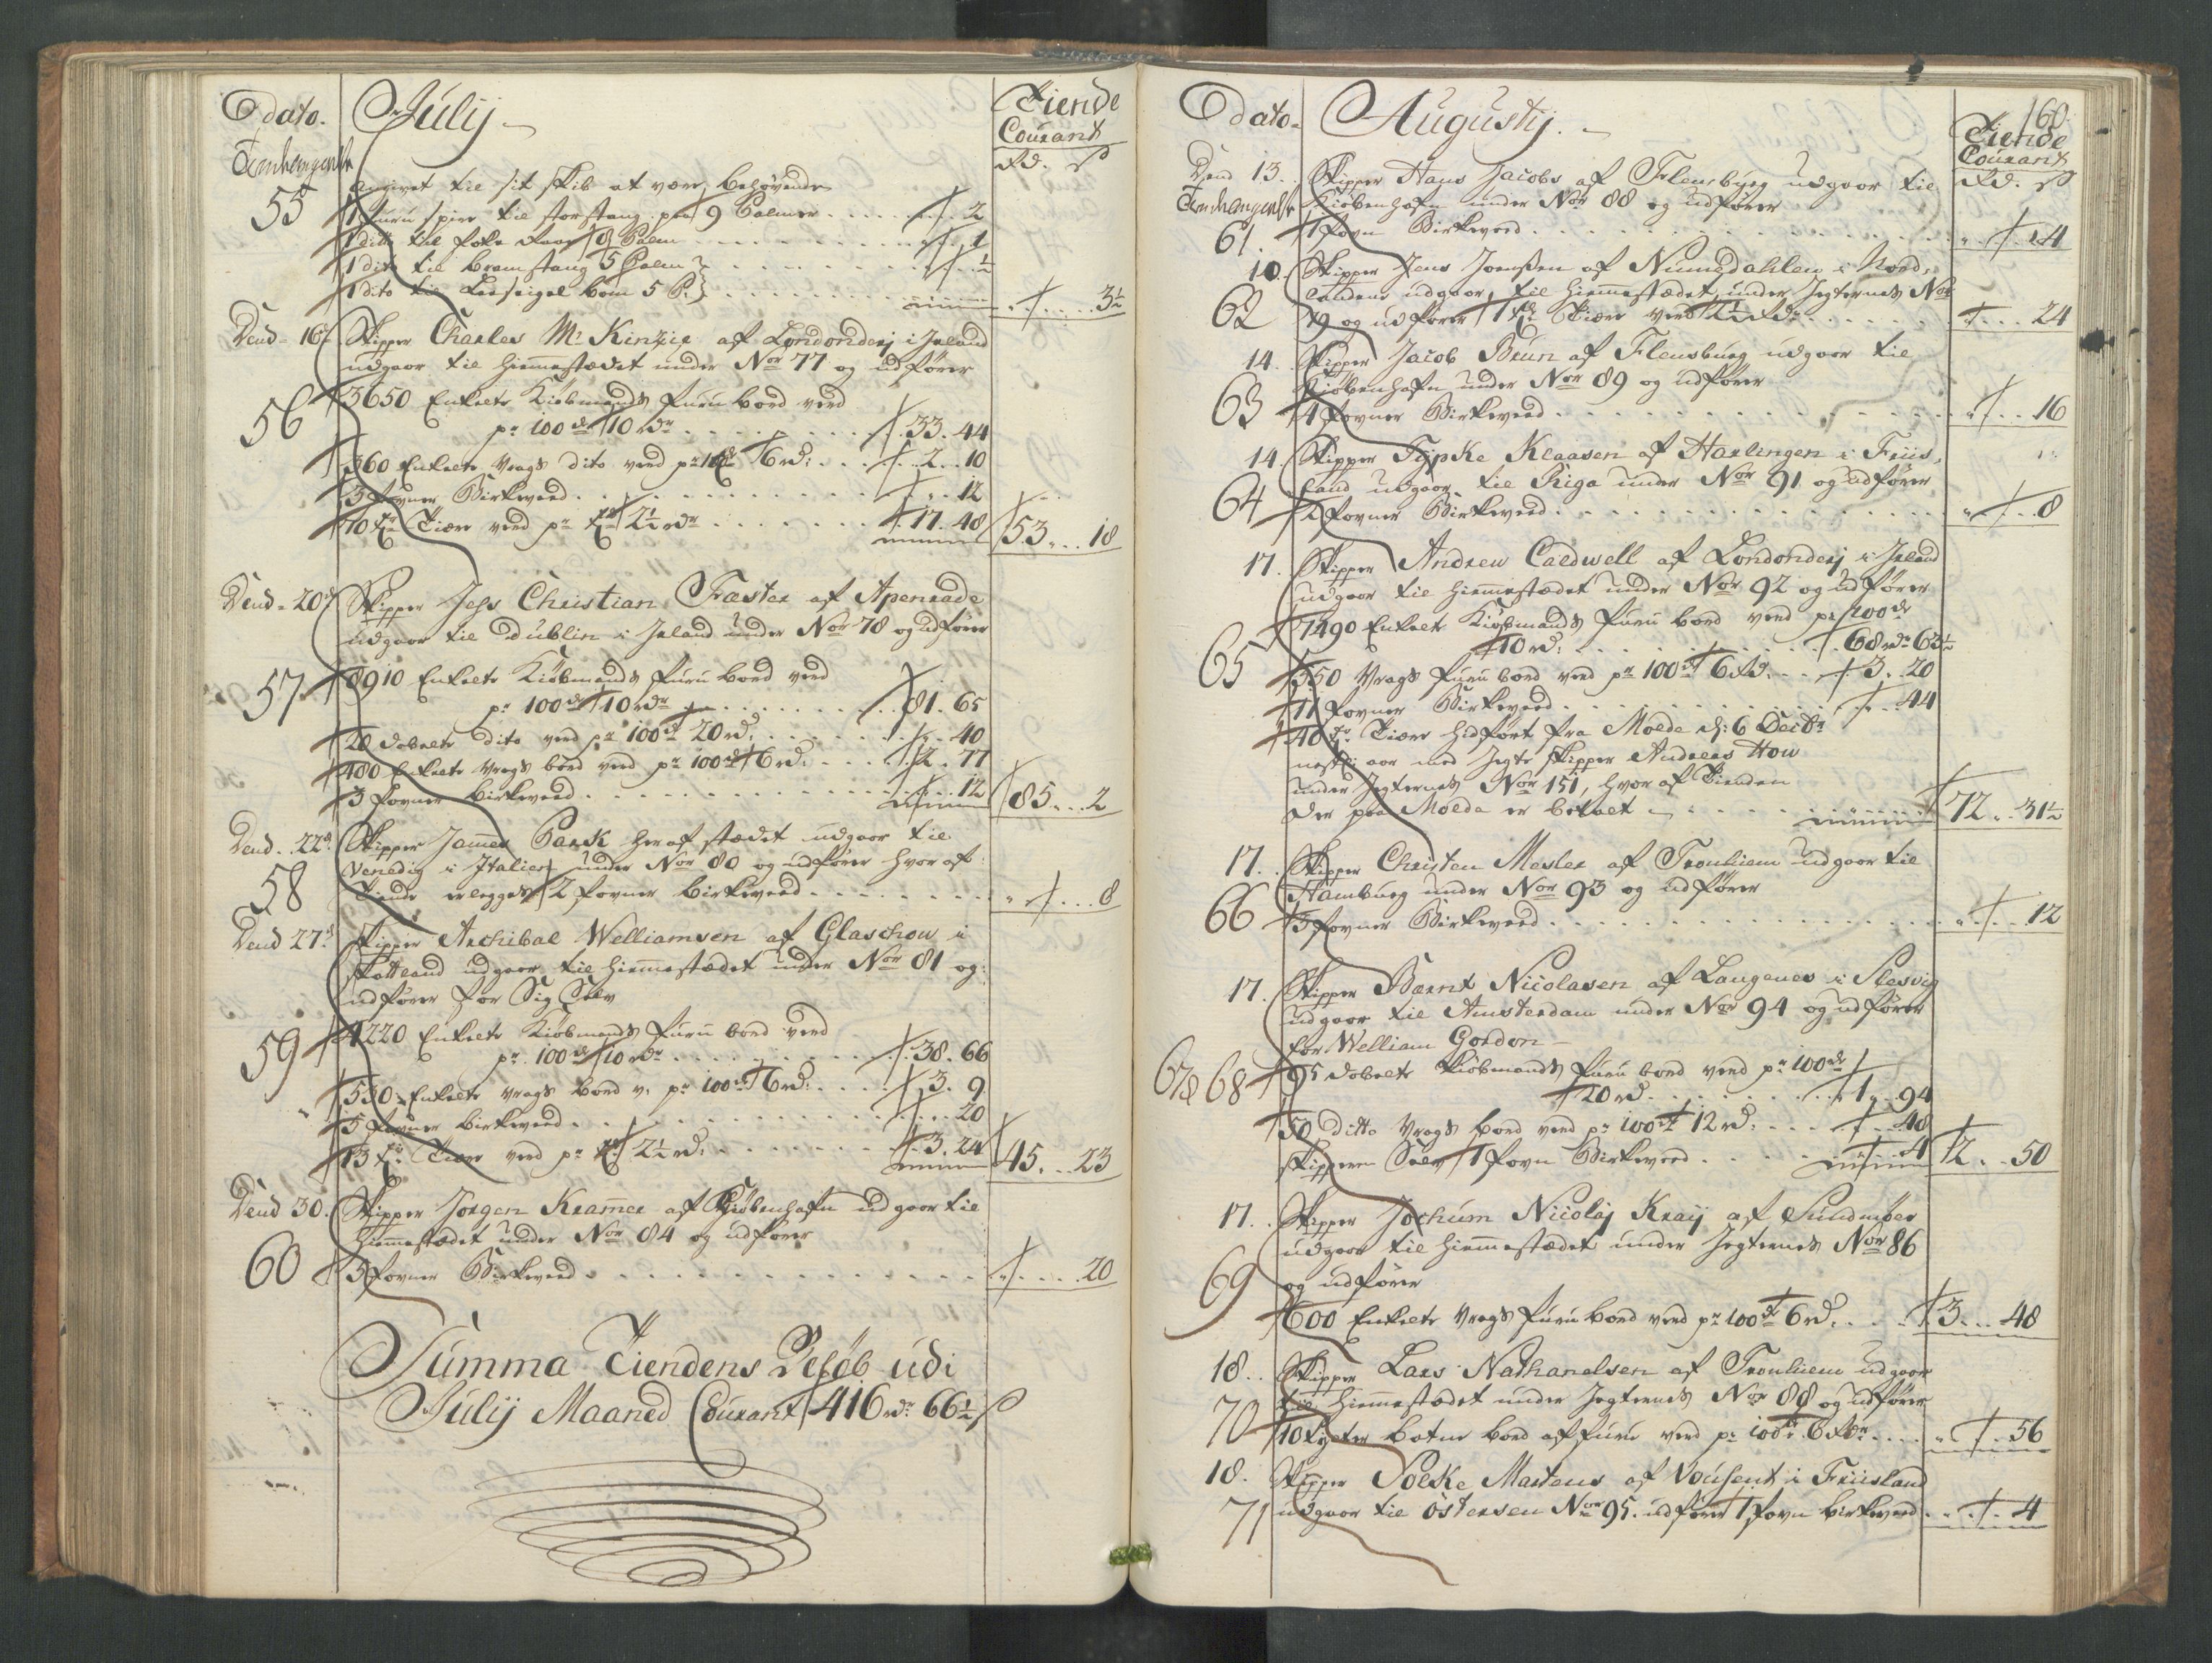 dato.
Julij
Tiende
Courant
Rd. ß
55
angivet til sit skib at være behøvende
1 furu spire til storstang paa 9 Palmer 2
1 ditto til foke Raae 8 Palm 1
1 dito til bramstang 5 Palm
1 dito til Leeseigel bom 5 P. ½
3½
Dend 16 Skipper Charles Mc Kinzie af Londonderj i Irland
udgaar til hiemmestædet under Nor 77 og udfører
56
3650 Enkelte Kiøbmands furu bord verd
pr 100de 10 rdr 33. 44
360 Enkelte Vrags dito verd pr 100de 6 rd: 2. 10
3 favner Birkeveed 12
70 tr Tiære verd pr tr 2½ rdr 17. 48
53 18
Dend 20de Skipper Jess Christian Faster af Apenrade
udgaar til Dublin i Irland under Nor 78 og udfører
57
8910 Enkelte Kiøbmands furu bord verd
pr 100de 10 rdr 81. 65
20 dobelte dito verd pr 100de 20 rd. 40
480 Enkelte Vrags bord verd pr 100de 6 rd: 2. 77
3 favner birkeveed 12
85 2
Dend 22de Skipper James Park her af stædet udgaar til
Venedig i Italien under Nor 80 og udfører hvor af
58
Tiende erlegges 2 favner birkeveed 8
Dend 27de Skipper Archibal Welliamsen af Glaschow i
Skottland udgaar til hiemmestædet under Nor 81 og
udfører for Sig Selv
59
4220 Enkelte Kiøbmands furu bord verd
pr 100de 10 rdr 38. 66
530 Enkelte Vrags bord v. pr 100de 6 rd: 3. 9
5 favner birkeveed 20
13 tr Tiære verd pr tr 2½ rd. 3. 24
45 23
Dend 30. Skipper Jørgen Kramer af Kiøbenhafn udgaar til
hiemmestædet under Nor 84 og udfører
60
5 favner Birkeveed 20
Summa Tiendens Beløb udi
Julij Maaned Courant 416 rdr 66½ ß
160.
dato
Augustij.
Tiende
Courant
Rd. ß
Dend 13. Skipper Hans Jacobs af Flensburg udgaar til
Kiøbenhafn under Nor 88 og udfører
61
1 favn Birkeveed 4
10. Skipper Jens Joensen af Numedahlen i Nord-
landene udgaar til hiemmestædet under Jegternes Nor
62
79 og udfører 1 tr Tiære verd 2½ rdr 24
14. Skipper Jacob Brun af Flensburg udgaar til
Kiøbenhafn under Nor 89 og udfører
63
4 favner Birkeveed 16
14. Skipper Typke Klaasen af Harlingen i Friis-
land udgaar til Riga under Nor 91 og udfører
64
2 favner Birkeveed 8
17. Skipper Andrew Caldwell af Londonderj i Irland
udgaar til hiemmestædet under Nor 92 og udfører
7490 Enkelte Kiøbmands furu bord verd pr 100de
65
10 rd: 68 rdr 63½
550 Vrags furu bord verd pr 100de 6 Rd. 3. 20
11 favner Birkeveed 44
40 tr Tiære hidført fra Molde d: 6 Decbr
nest i aar med Jegte Skipper Andreas How
under Jegternes Nor 151, hvor af Tienden
der paa Molde er betalt
72 31½
17. Skipper Christen Mesler af Tronhiem udgaar til
Hamburg under Nor 93 og udfører
66
3 favner Birkeveed 12
17. Skipper Barnt Nicolasen af Langenes i Slesvig
udgaar til Amsterdam under Nor 94 og udfører
for Welliam Gordon
67 & 68
95 dobelte Kiøbmands furu bord verd pr 100de
20 rd 1. 94
50 ditto Vrags bord verd pr 100de 12 rd: 48
Skipperen Selv 1 favn Birkeveed 4
2 50
17. Skipper Jochum Nicolaj Kraij af Sundmøer
udgaar til hiemmestædet under Jegternes Nor 86
69
og udfører
600 Enkelte Vrags furu bord verd pr 100de 6 rd. 3 48
18. Skipper Lars Nathanelsen af Tronhiem udgaar
til hiemmestædet under Jegternes Nor 88 og udfører
70
10 tylter botne bord af furu verd pr 100de 6 Rdr 56
18. Skipper Poelke Martens af i Friisland
71
udgaar til Østersen Nor 95. udfører 1 favn birkeveed 4